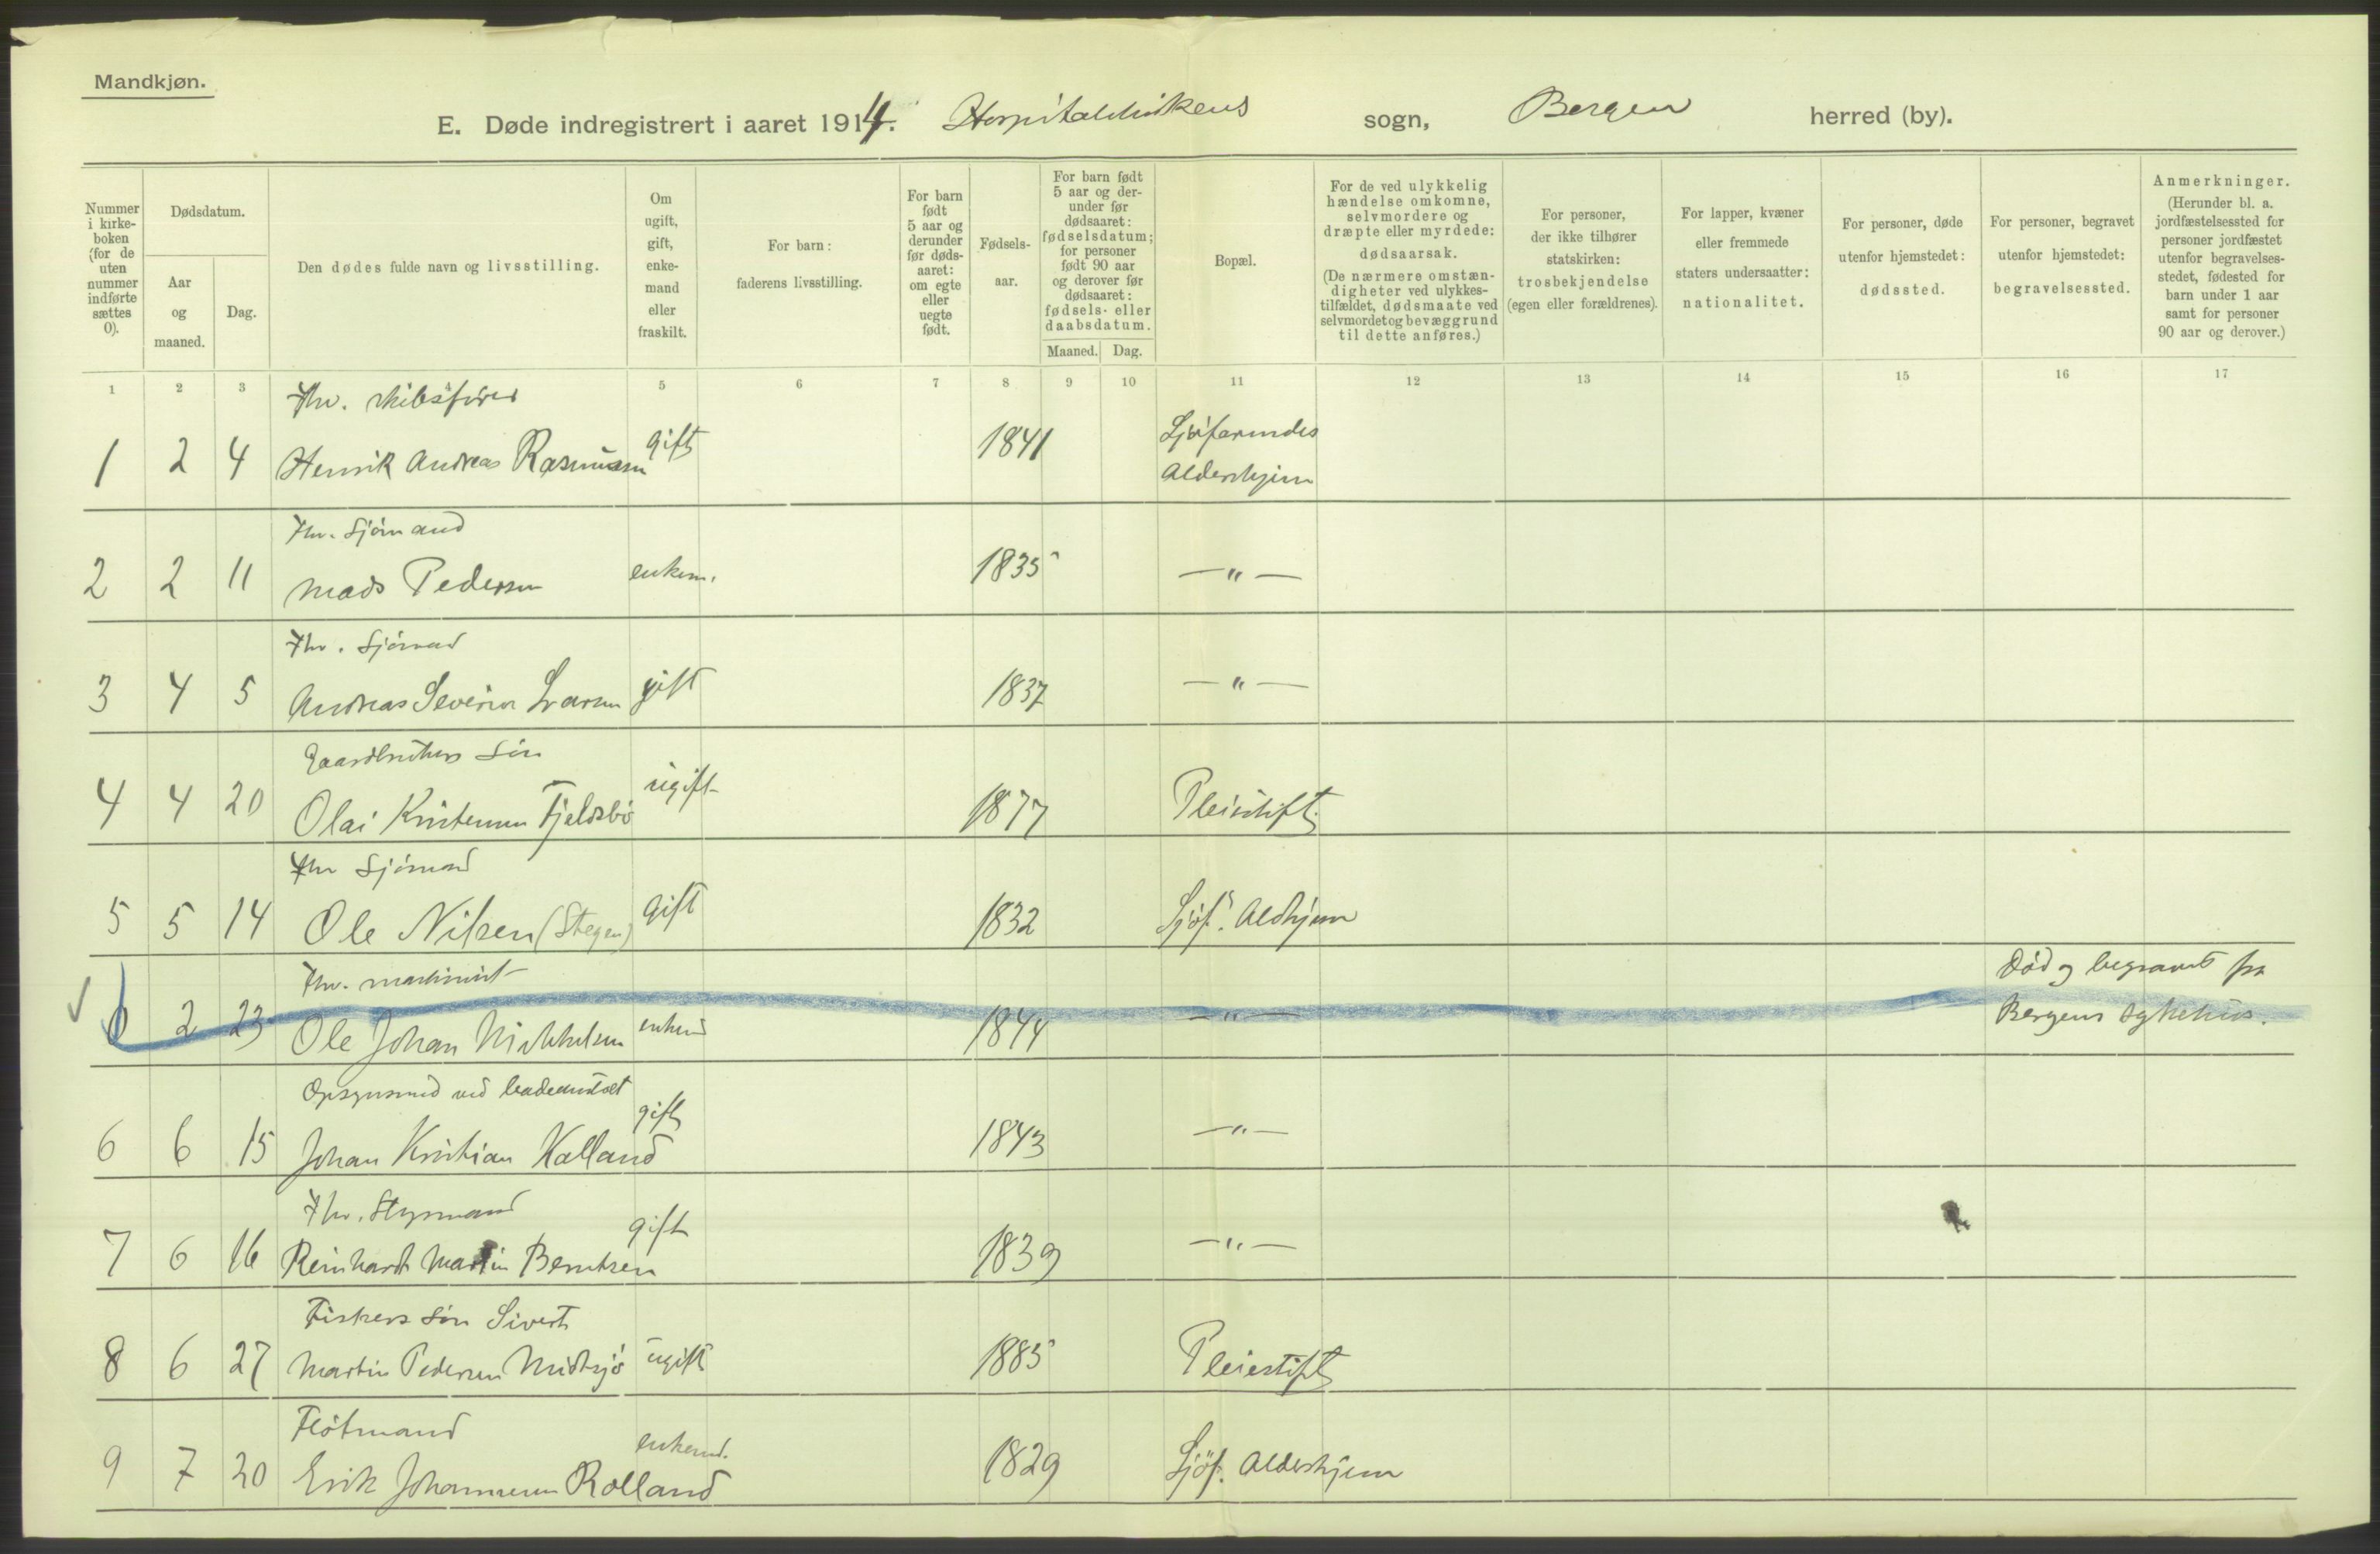 Mandkjøn.
E. Døde indregistrert i aaret 1914. Hospitalskirkens sogn, Bergen herred (by).
Nummer i kirke- boken (for de uten nummer indførte sættes 0).
Dødsdatum.
Aar og maaned.
Dag.
Den dødes fulde navn og livsstilling.
Om ugift, gift, enke- mand eller fraskilt.
For barn: faderens livsstilling.
For barn født 5 aar og derunder før døds- aaret: om egte eller uegte født.
Fødsels- aar.
For barn født 5 aar og der- under før dødsaaret: fødselsdatum; for personer født 90 aar og derover før dødsaaret: fødsels- eller daabsdatum.
Maaned. Dag.
Bopæl.
For de ved ulykkelig hændelse omkomne, selvmordere og dræpte eller myrdede: dødsaarsak. (De nærmere omstæn- digheter ved ulykkes- tilfældet, dødsmaate ved selvmordet og bevæggrund til dette anføres.)
For personer, der ikke tilhører statskirken: trosbekjendelse (egen eller forældrenes).
For lapper, kvæner eller fremmede staters undersaatter: nationalitet.
For personer, døde utenfor hjemstedet: dødssted.
For personer, begravet utenfor hjemstedet: begravelsessted.
Anmerkninger. (Herunder bl. a. jordfæstelsessted for personer jordfæstet utenfor begravelses- stedet, fødested for barn under 1 aar samt for personer 90 aar og derover.)
1 2 3 4 5 6 7 8 9 10 11 12 13 14 15 16 17
Fhv. skibsfører
1 2 4 Henrik Andreas Rasmussen gift 1841 Sjöfarendes
Aldershjem
Fhv. Sjömand
2 2 11 Mads Pedersen enkem. 1835 —"—
Fhv. Sjömand
3 4 5 Andreas Severin Larsen gift 1837 —"—
Gaardbrukers sön
4 4 20 Olai Kristensen Fjeldsbö ugift 1877 Pleiestift.
Fhv Sjömand
5 5 14 Ole Nilsen (Stegen) gift 1832 Sjöf. Aldhjem
Fhv. maskinist Död og begravet fra
0 2 23 Ole Johan Mikkelsen enkem 1844 —"— Bergens sykehus.
Opsynsmand ved badeanstalt
6 6 15 Johan Kristian Halland gift 1843 —"—
Fhv. Styrmand
7 6 16 Reinhardt Martin Berntsen gift 1839 —"—
Fiskers sön Sivert
8 6 27 Martin Pedersen Midtsjö ugift 1885 Pleiestift
Flötmand
9 7 20 Erik Johannesen Rolland enkemd. 1829 Sjöf. Aldershjem